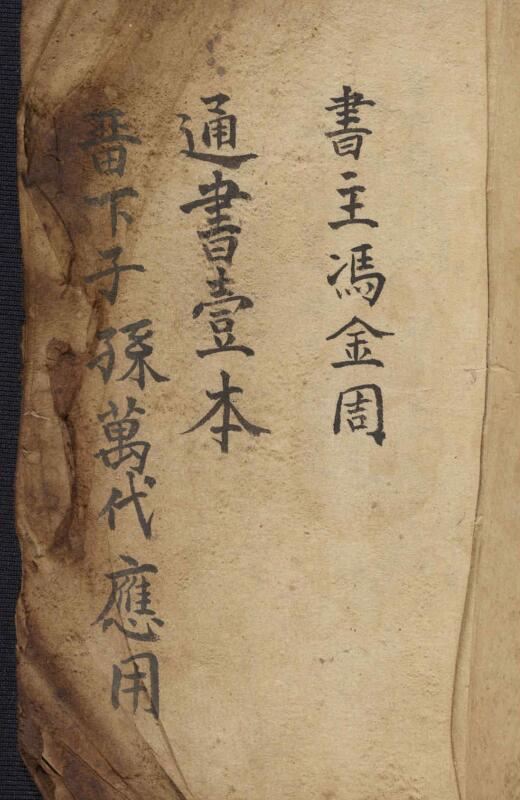 書主馮金周
通書壹本
畱下子孫萬代應用